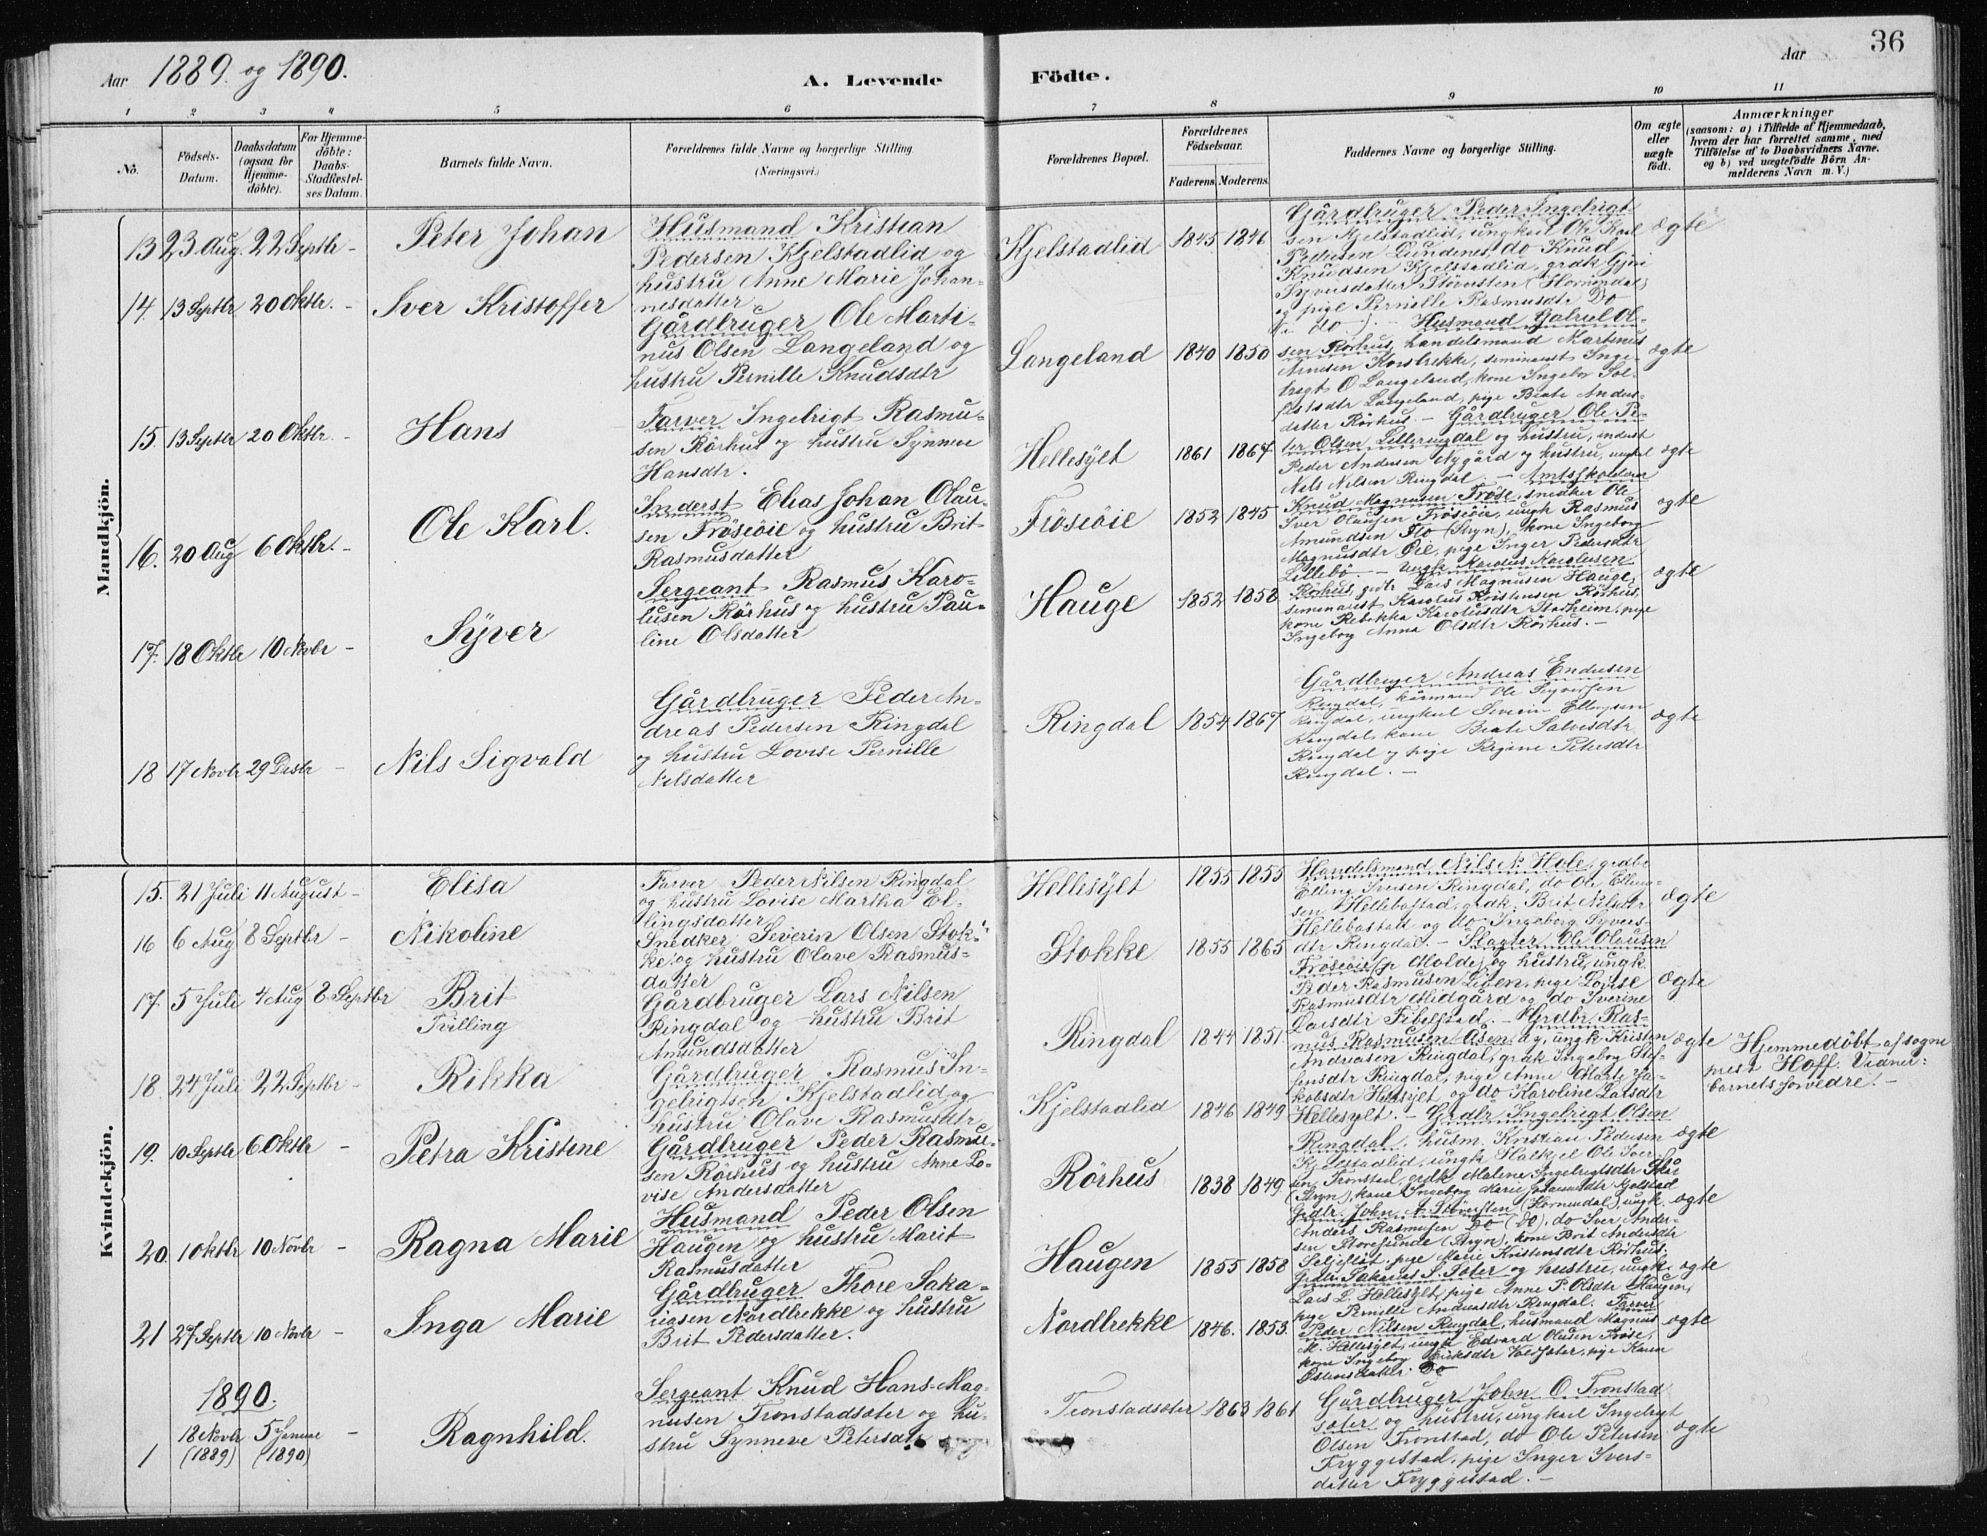 Aar 1889. og 1890.
A. Levende
Födte.
Aar
36
1 2 3 4 5 6
7 8 9 10 11
No.
Födsels-
Datum.
Daabsdatum
(ogsaa for
Hjemme-
döbte).
For Hjemme-
döbte:
Daabs-
Stadfæstel-
ses Datum.
Barnets fulde Navn.
Forældrenes fulde Navne og borgerlige Stilling.
(Næringsvei.)
Forældrenes Bopæl.
Forældrenes
Födselsaar.
Faderens. Moderens.
Faddernes Navne og borgerlige Stilling.
Om ægte
eller
uægte
födt.
Anmærkninger
(saasom: a) i Tilfælde af Hjemmedaab,
hvem der har forrettet samme, med
Tilföielse af to Daabsvidners Navne,
og b) ved uægtefödte Börn An-
melderens Navn m. V.)
Mandkjön.
13 23 Aug. 22 Septbr – Peter Johan
Husmand Kristian
Pedersen Kjelstadlid og
hustru Anne Marie Johan-
nesdatter
Kjelstadlid 1845 1846
Gårdbruger Peder Ingebrigt
sen Kjelstadlid, ungkarl Ole Karl
Pettersen Lundenes, do Knud
Knudsen Kjelstadlid, grdk Gjøri
Syversdatter Störösten (Hornindal)
og pige Pernille Rasmusdtr Do
ægte
14. 13 Septbr 20 Oktbr. – Iver Kristoffer
Gårdbruger Ole Marti-
nus Olsen Langeland og
hustru Pernille Knudsdtr
Langeland 1840 1850
Husmand Gabriel Ol-
sen Rörhus, handelsmand Martinus
Arnesen Korsbrekke, seminarist Inge-
brigt O Langeland, kone Ingebor Sol-
datter Rörhus –
ægte
15 13 Septbr 20 Oktbr. – Hans
Farver Ingebrigt Rasmu-
sen Rörhus og hustru Synneve
Hansdtr.
Hellesylt 1861 1867
Gårdbruger Ole Pe-
ter Olsen Lilleringdal og hustru, inderst
Peder Andersen Nygård og hustru, ungkal
Nels Nilsen Ringdal –
ægte
16. 20 Aug 6 Oktbr. – Ole Karl.
Inderst Elias Johan Olau-
sen Fröseöie og hustru Brit
Rasmusdatter
Fröseöie 1852 1845
Amtsskolelærer
Knud Magnusen Fröse, snedker Ole
Iver Olausen Fröseöie, ungk Rasmus
Amundsen Flo (Stryn), kone Ingeborg
Magnusdtr Öie, pige Inger Pedersdtr
Lillebö. –
ægte
17. 18 Oktbr 10 Novbr – Syver
Sergeant Rasmus Karo-
lusen Rörhus og hustru Pau-
line Olsdatter
Hauge 1852 1858
Rörhus, grdbr Lars Magnusen Hauge,
seminarist Karolus Kristensen Rörhus,
kone Rebekka Karolusdtr Stadheim, pige
Ingeborg Anna Olsdtr Rörhus. –
ægte
18 17 Novbr 29 Desbr – Nils Sigvald
Gårdbruger Peder An-
dreas Pedersen Ringdal
og hustru Lovise Pernille
Nilsdatter
Ringdal 1854 1867
Gårdbruger Andreas Endresen
Ringdal, kårmand Ole Syversen
Ringdal, ungkarl Severin Ellingsen
Ringdal, kone Beate Salvesdtr
Ringdal og pige Regine Petersdtr
Ringdal. –
ægte
Kvindekjön.
15. 21 Juli 11 August – Elisa
Farver Peder Nilsen Ringdal
og hustru Lovise Martha El-
lingsdatter
Hellesylt 1855 1855
Handelsmand Nils N. Hole, grdbr
Elling Iversen Ringdal, do Ole Elling-
sen Hellebostad, grdk. Brit Nilsdtr
Hellebostad og do Ingeborg Syvers-
dtr Ringdal. –
ægte
16 6 Aug 8 Septbr – Nikoline
Snedker Severin Olsen Stok-
ke og hustru Olave Rasmus-
datter
Stokke 1855 1865
Slagter Ole Olausen
Fröseöie (p Molde) og hustru, ungk
Peder Rasmusen Lien, pige Lovise
Rasmusdtr Midgård og do Iverine
Larsdtr Fibelstad. –
ægte
17. 5 Juli 4 Aug 8 Septbr Brit
Tvilling
Gårdbruger Lars Nilsen
Ringdal og hustru Brit
Amundsdatter
Ringdal 1844 1851
Grdbr. Ras-
mus Rasmusen Åsen, ungk Kristen
Andreasen Ringdal, grdk Ingeborg
sensdtr Ringdal, pige Anne Marte Ja-
kobsdtr Hellesylt og do Karoline Larsdtr
Hellesylt. –
ægte
Hjemmedöbt af sogne
prest Hoff. Vidner:
barnets forældre. –
18. 24 Juli 22 Septbr – Rikka
Gårdbruger Rasmus In-
gebrigtsen Kjelstadlid og
hustru Olave Rasmusdtr
Kjelstadlid 1846 1849
Grdbr Ingebrigt Olsen
Ringdal, husm. Kristian Pedersen
Kjelstadlid, ungk Halkjel Ole Iver
sen Tronstad, grdk Malene Ingebrigtsdtr
(Stryn), kone Ingeborg Marie
ægte
19. 10 Septbr 6 Oktbr – Petra Kristine
Gårdbruger Peder Rasmu-
sen Rörhus og hustru Anne Lo-
vise Andersdatter
Rörhus 1838 1849
Grdbr. John A. Störösten (Hornindal), ungk.
Anders Rasmusen Do (do), do Iver Ander-
sen Storesunde (Stryn), kone Brit Andersdtr
Seljeflöt, pige Marie Kristensdtr Rörhus.
ægte
20. 1 Oktbr 10 Novbr – Ragna Marie
Husmand Peder Olsen
Haugen og hustru Marit
Rasmusdatter
Haugen 1855 1858
Grdbr. Sakarias S. Sæter og hustru, ungk.
Lars L. Hellesylt, pige Anne P. Olsdtr Haugen,
pige Pernille Andreasdtr Ringdal.
ægte
21 27 Septbr 10 Novbr – Inga Marie
Gårdbruger Thore Saka-
riasen Nordbrekke og hustru
Brit Pedersdatter.
Nordbrekke 1846. 1853.
Farver
Peder Nilsen Ringdal, husmand Magnus
M. Hellesylt, ungk Edvard Olausen Fröse,
kone Ingeborg Eriksdtr Voldsæter, pige Karen
Do
ægte
1890.
1 18 Novbr (1889) 5 Januar (1890) – Ragnhild.
Sergeant Knud Hans Mag-
nusen Tronstadsæter og hu-
stru Synneve Petersdtr
Tronstadsæter 1863 1861
Gårdbruger John O. Tronstad
sæter og hustru, ungkarl Ingebrigt
Olsen Tronstad, do Ole Petersen
Tryggestad, pige Inger Ivers-
datter Tryggestad. –
ægte